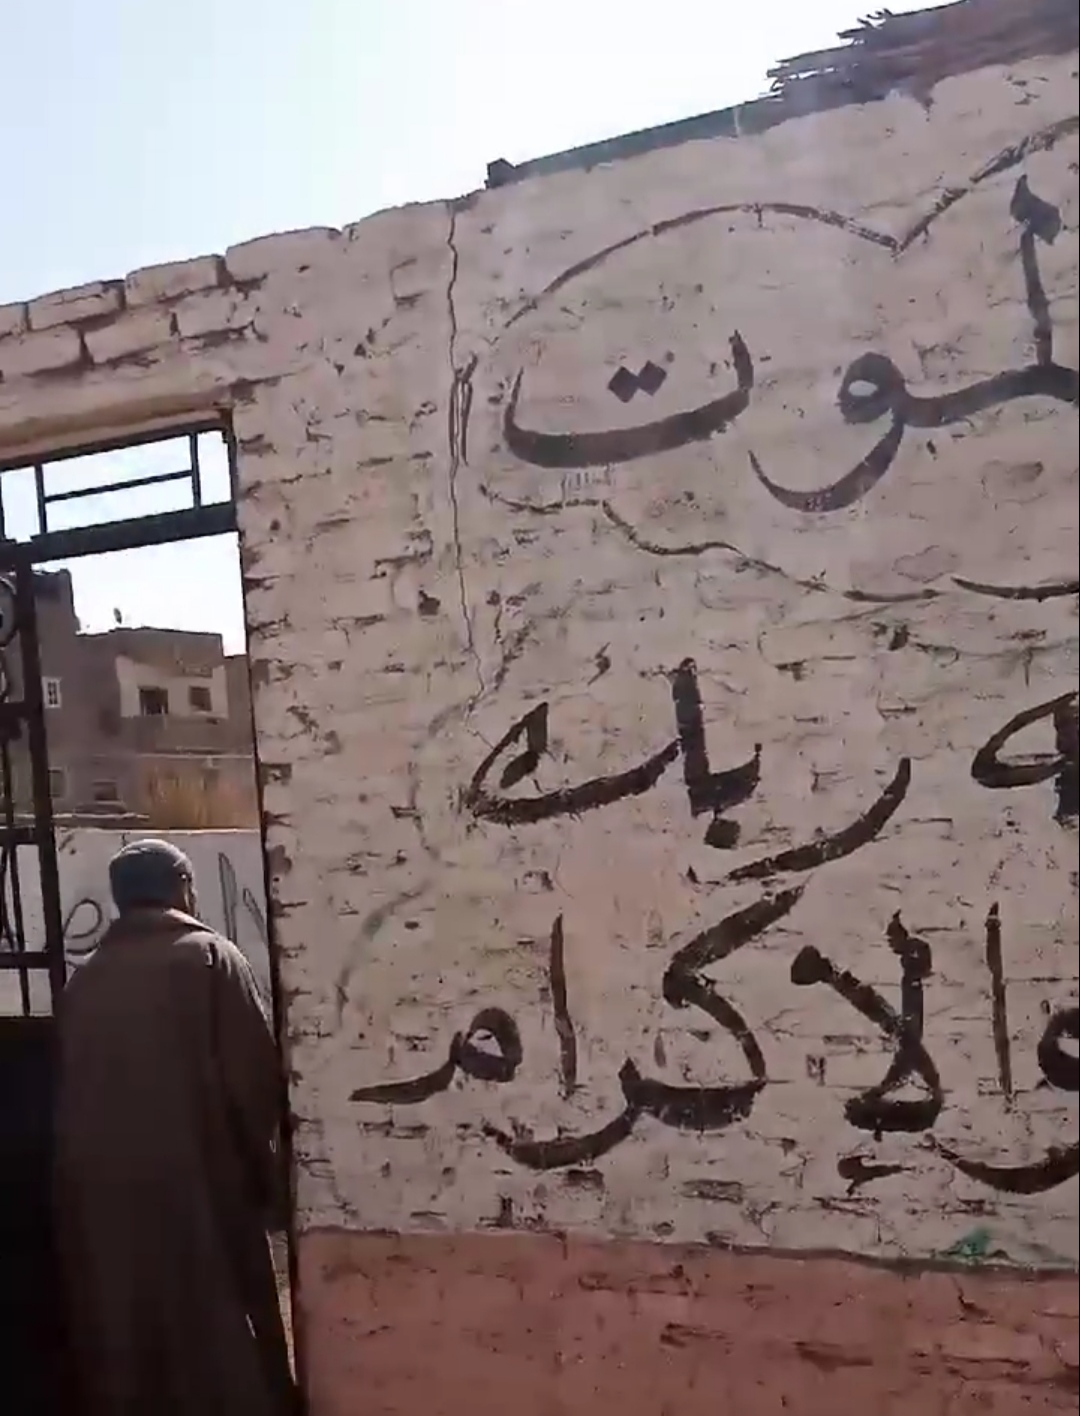 الموت
ه ربك
والاكرام